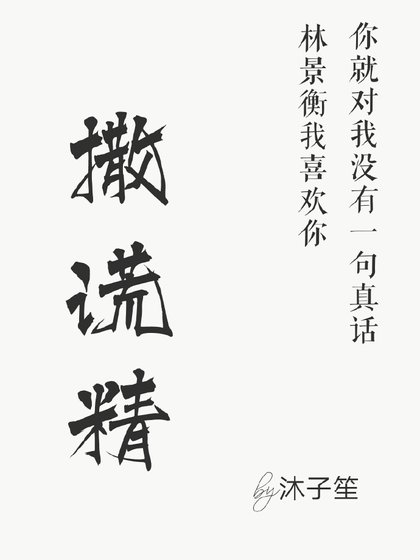 你就对我没有一句真话
林景衡我喜欢你
撒谎精
by沐子笙